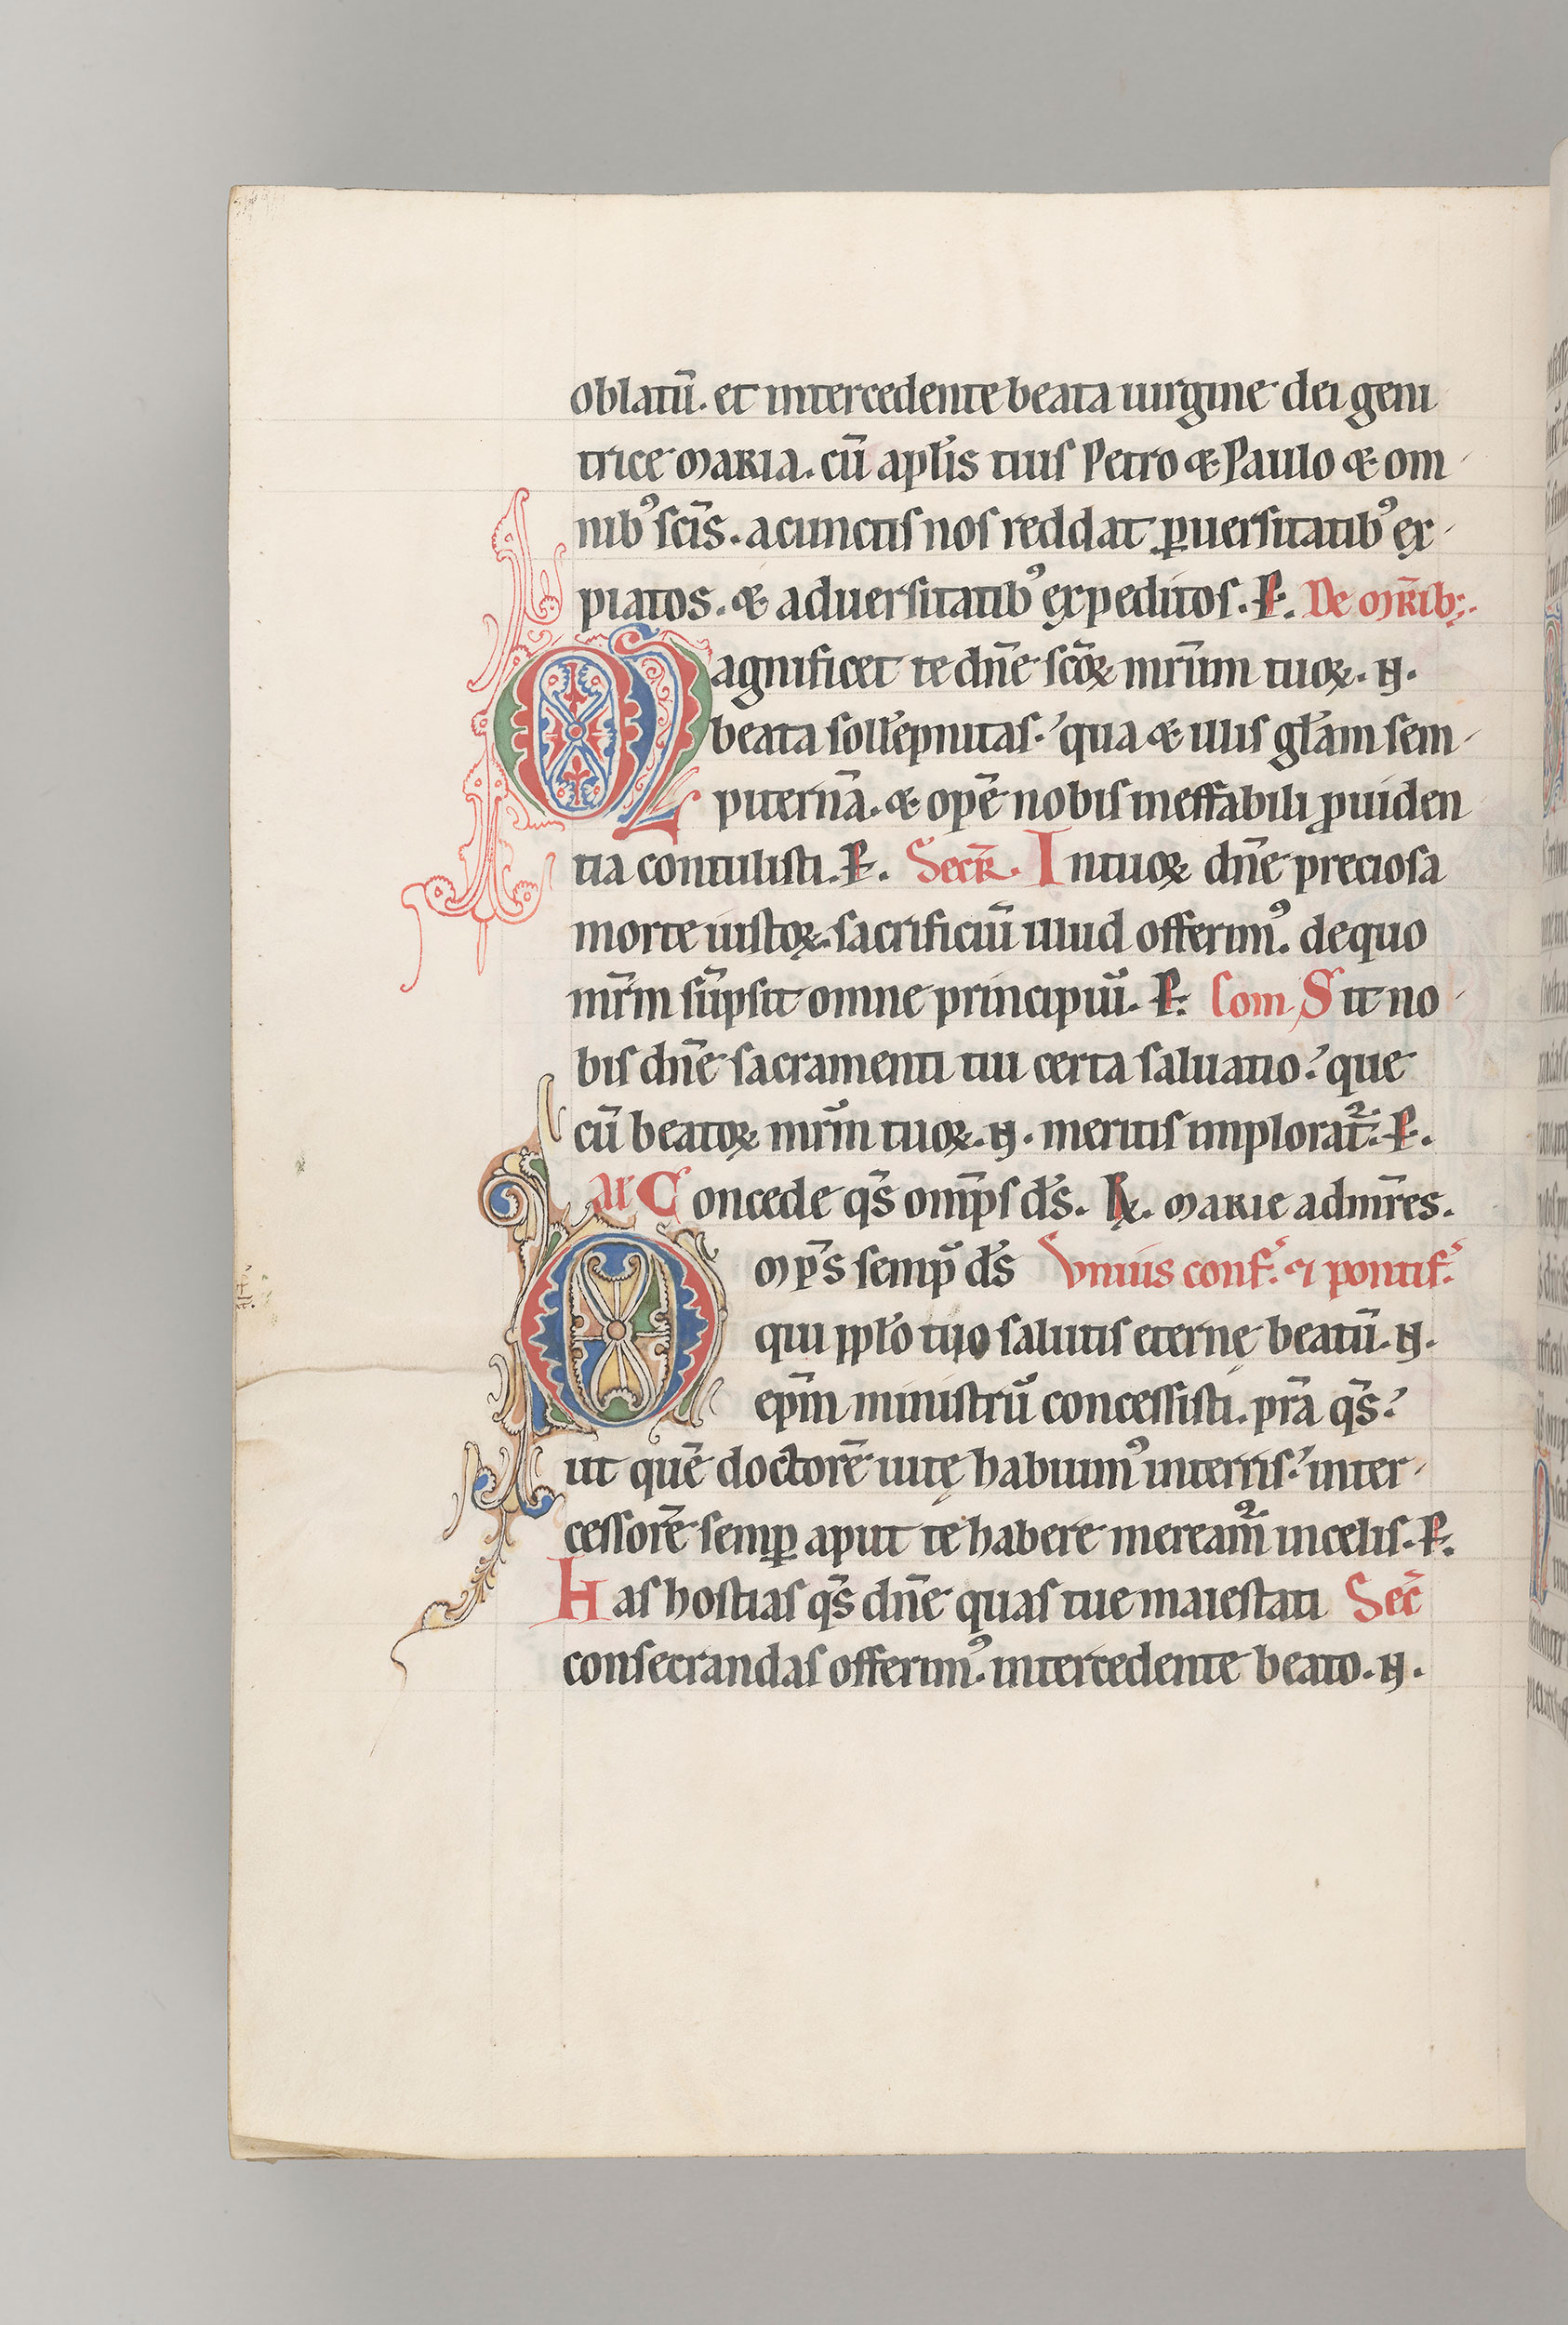 oblatū. et intercedente beata uirgine dei geni
trice maria. cū apl̄is tuis Petro & Paulo & om
nibꝰ sc̄is. a cunctis nos reddat ꝑuersitatibꝰ ex
piatos. & aduersitatibꝰ expeditos. P. De mr̄ib;.
Magnificet te dn̄e sc̄oꝝ mr̄um tuoꝝ. N.
beata soll̄epnitas. qua & illis gl̄am sem
piternā. & opē nobis ineffabili ꝓuiden
tia contulisti. P. Secr̄. In tuoꝝ dn̄e preciosa
morte iustoꝝ. sacrificiū illud offerimꝰ. de quo
mr̄m sūpsit omne principiū. P. Com Sit no
bis dn̄e sacramenti tui certa saluatio. que
cū beatoꝝ mr̄m tuoꝝ. N. meritis implorat᷑. P.
Al̄ Concede qs̄ omp̄s ds̄. R. marie ad mr̄es.
Omp̄s semp̄ ds̄ Vnius conf. ⁊ pontif.
qui ppl̄o tuo salutis eternę beatū. N.
ep̄m ministrū concessisti. pr̄a qs̄.
ut quē doctorē uitę habuimꝰ in terris. inter
cessorē semꝑ aput te habere mereamur in celis. P.
Has hostias qs̄ dn̄e quas tue maiestati Sec̄
consecrandas offerimꝰ. intercedente beato. N.